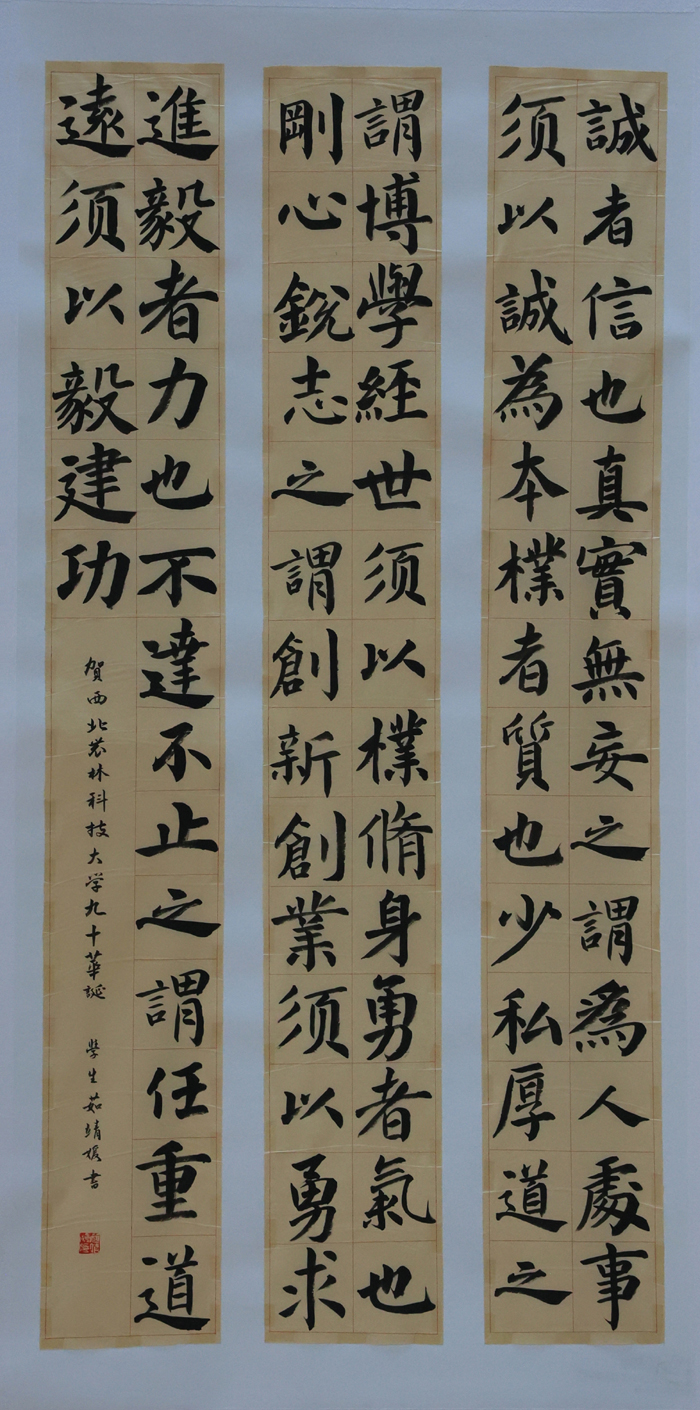 誠者信也真實無妄之謂爲人處事
须以誠為本樸者質也少私厚道之
謂博學經世须以樸脩身勇者氣也
剛心銳志之謂創新創業须以勇求
進毅者力也不達不止之謂任重道
遠须以毅建功
贺西北农林科技大学九十華誕 學生茹靖書